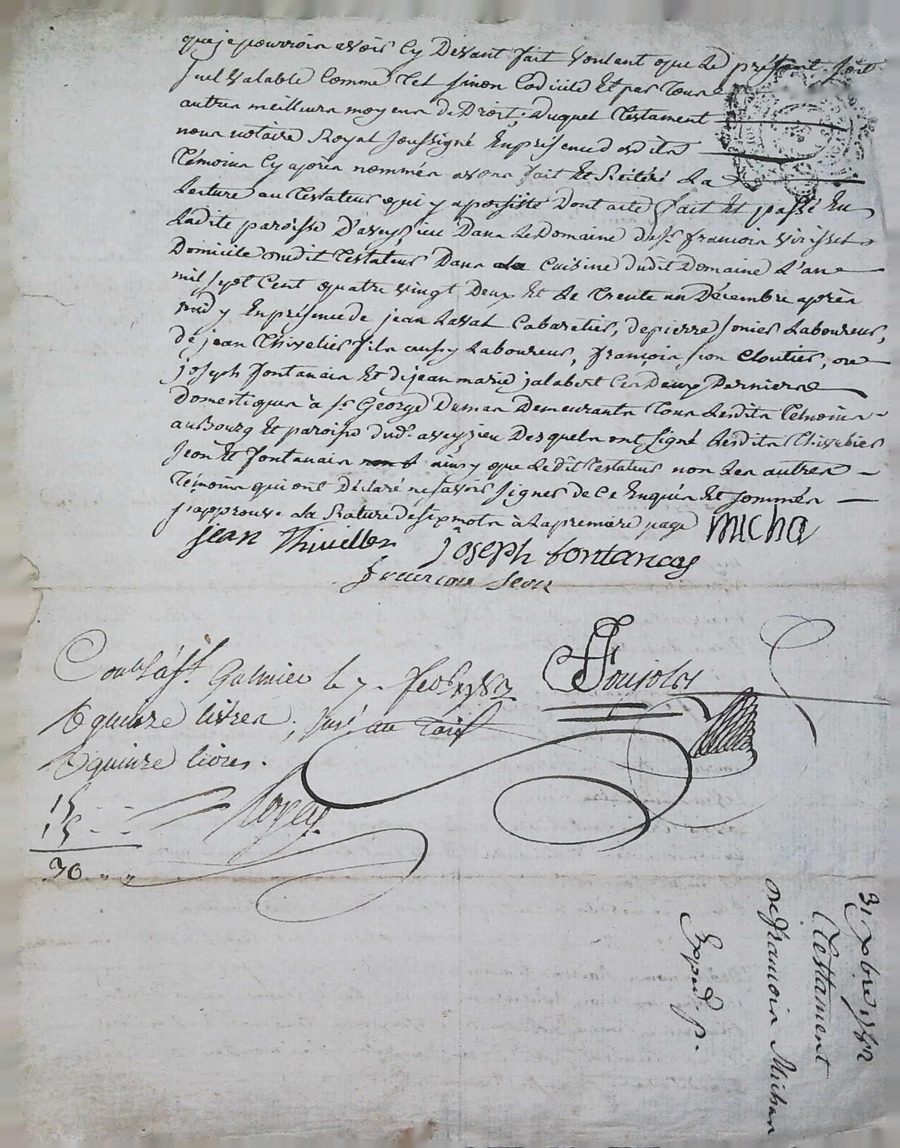 que je pourrois avoir Cy Devant fait voulant que Le present soit
seul valable Comme tel sinon Codicile Et par Tous
autres meilleurs moyens de Droit, Duquel Testament
nous notaire Royal soussigné En presence desdits
témoins Cy après nommés avons fait Et Réitéré La
Lecture au Testateur qui y a persisté Dont acte fait Et passé En
Ladite paroisse D'aveyzieu Dans Le Domaine du Sr. françois
Domicile dudit Testateur Dans La Cuizine dudit Domaine L'an
mil sept Cent quatre vingt Deux Et Le Trente un Décembre après
midy En présence de jean Cabaretier, de pierre Laboureur,
de jean fils aussy Laboureur, françois Cloutier, de
joseph fontanais Et de jean marie jalabert Ces Deux Derniers
domestiques à St. George Demeurants Tous Lesdits Témoins
au Bourg Et paroisse dud. aveyzieu Desquels ont signé Lesdits
Et fontanais ainsy que Ledit Testateur non Les autres
Témoins qui ont Déclaré ne savoir signer de Ce Enquis Et sommés
j'approuve La Rature de six mots à La premiere page micha
jean joseph fontanas
françois
à St. Galmier le 7.
quinze livres, au Tarif
quinze livres.
15
15
30
31 xbre 1782
Testament
de françois Michas
Exped. p.